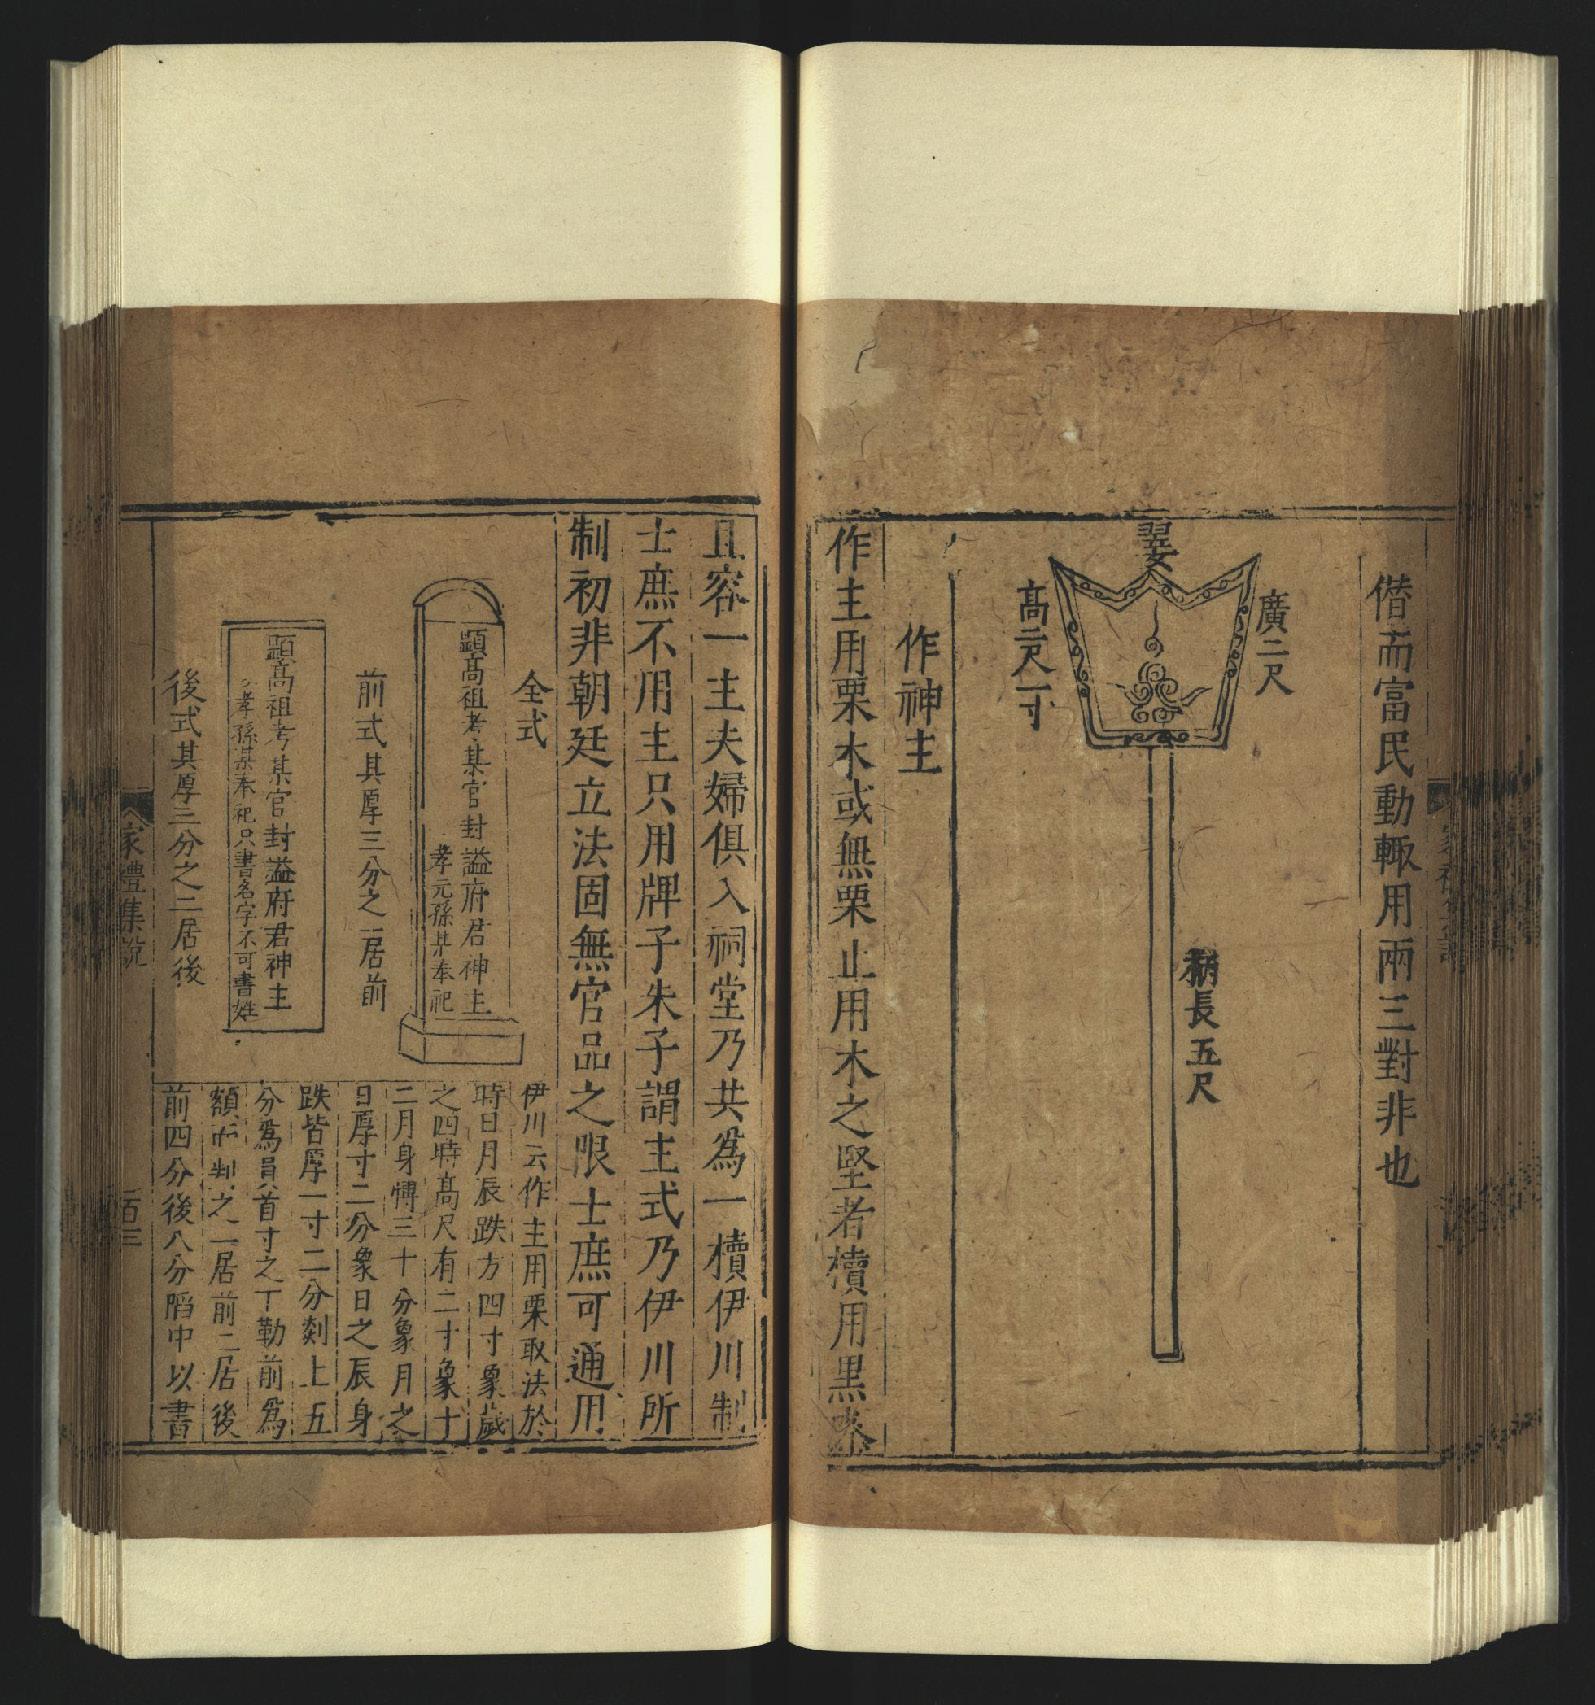 僣而富民動輙用兩三對非也
翣
廣二尺
高二尺一寸
柄長五尺
作神主
作主用栗木或無栗止用木之堅者櫝用黒漆
且容一主夫婦俱入祠堂乃共為一櫝伊川制
士庶不用主只用牌子朱子謂主式乃伊川所
制初非朝廷立法固無官品之限士庶可通用
全式
顯高祖考某官封謚府君神主
孝元孫某奉祀
前式其厚三分之一居前
顯高祖考某官封謚府君神主
孝孫某奉祀只書名字不可書姓
後式其厚三分之二居後
伊川云作主用栗取法於
時日月辰趺方四寸象歲
之四時高尺有二寸象十
二月身慱三十分象月之
日厚寸二分象日之辰身
趺皆厚一寸二分剡上五
分為員首寸之下勒前為
額而判之一居前二居後
前四分後八分䧟中以書
家禮集說
百三